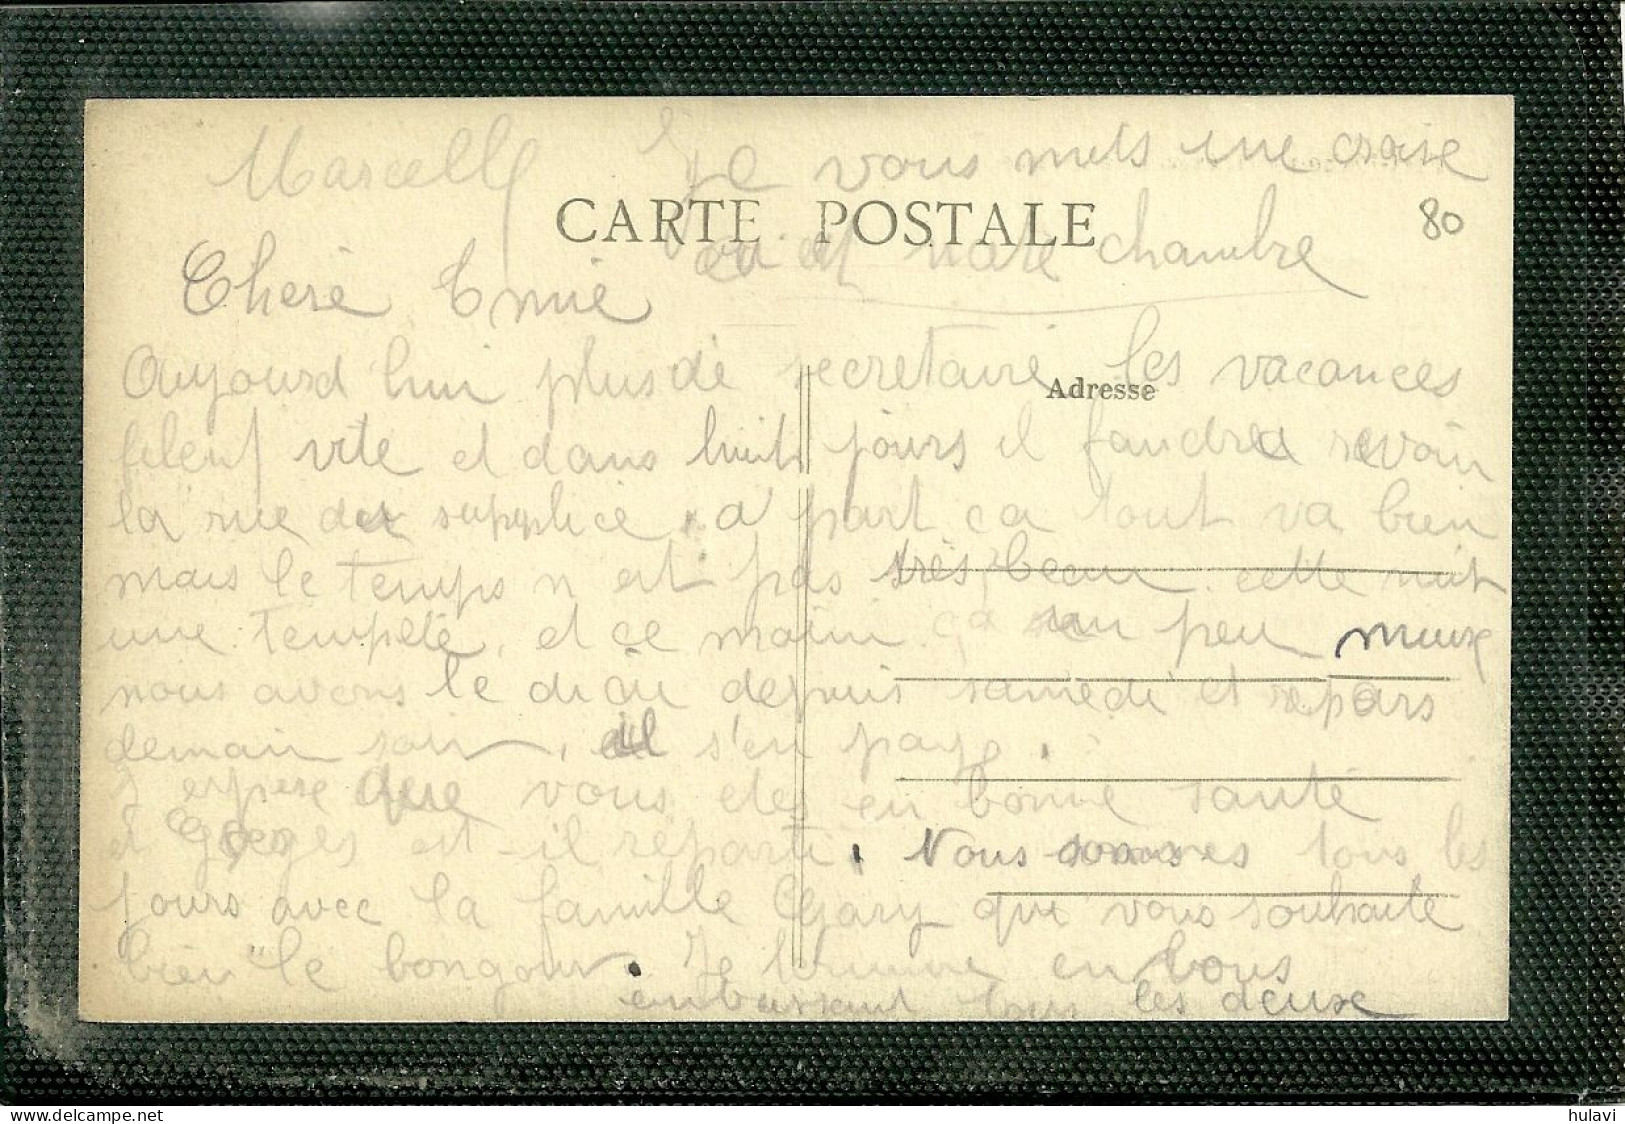 Marcelle Je vous mets une croise
CARTE POSTALE 80
ou est notre chambre
Chere Emie
Aujourd hui plus de secretaire les vacances
Adresse
filent vite et dans huit jours il faudra revoir
la rue du supplice, a part ca tout va bien
mais le temps n est pas très beau cette nuit
une tempete, et ce matin ça un peu mieux
nous avons le depuis samedi et repars
demain soir, il s'en paye.
J espere que vous etes en bonne santé
et Goerges est-il reparti. Nous sommes tous les
jours avec la famille Gary qui vous souhaite
bien le bongour. Je termine en vous
embrassant tous les deuxe
hulavi